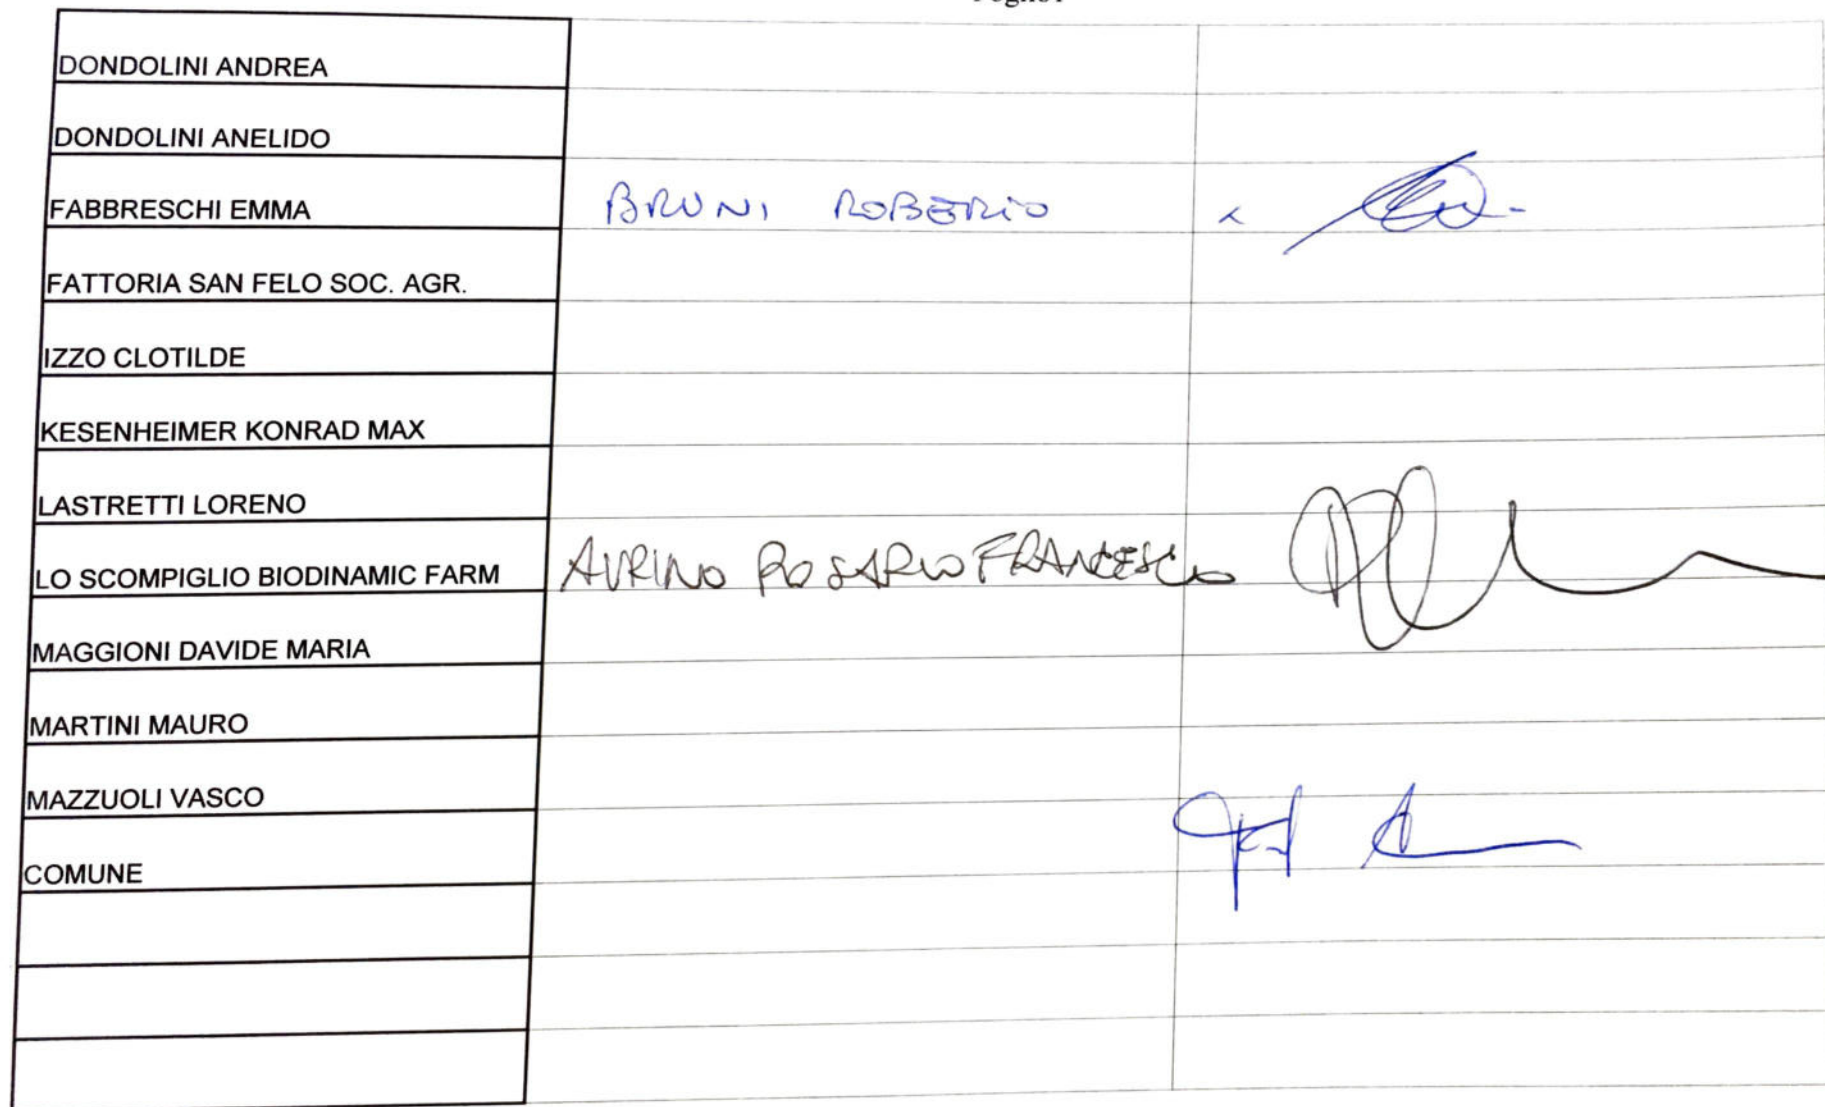 DONDOLINI ANDREA
DONDOLINI ANELIDO
FABBRESCHI EMMA BRUNI ROBERTO
FATTORIA SAN FELO SOC. AGR.
IZZO CLOTILDE
KESENHEIMER KONRAD MAX
LASTRETTI LORENO
LO SCOMPIGLIO BIODINAMIC FARM AURINO ROSARIO FRANCESCO
MAGGIONI DAVIDE MARIA
MARTINI MAURO
MAZZUOLI VASCO
COMUNE